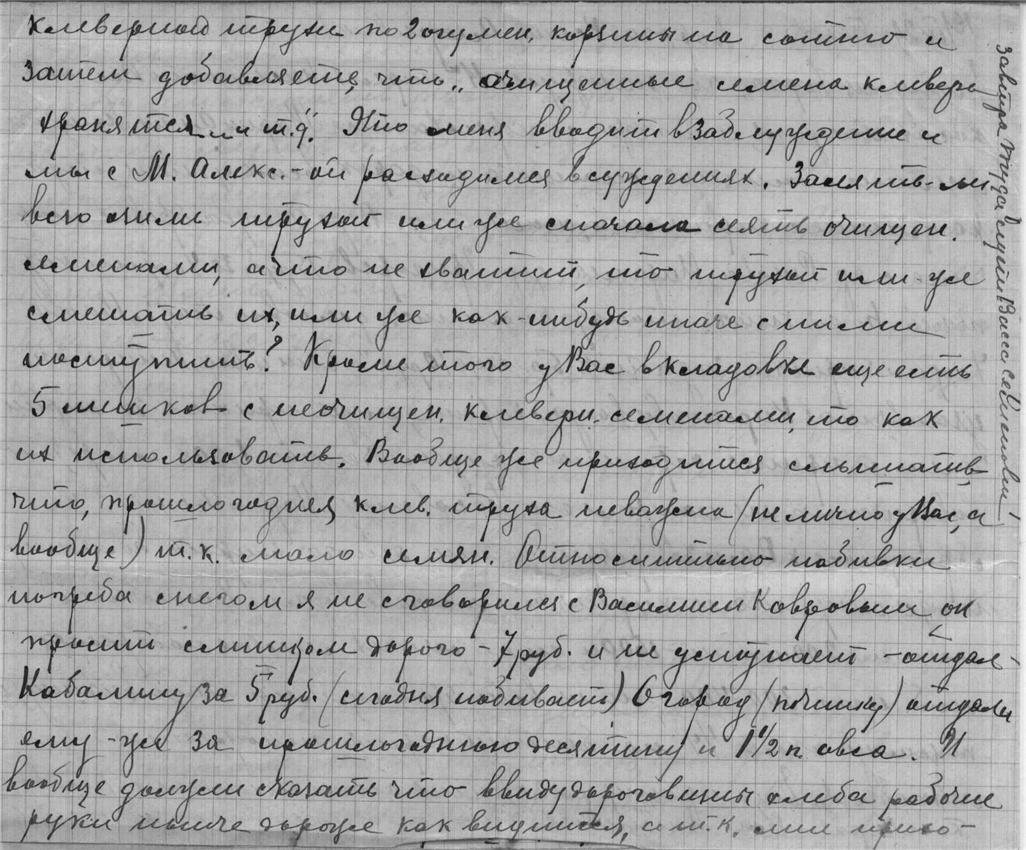 клеверной трухи по 2 огумен. корзины на сотню и
затем добавляете, что „очищенные семена клевера
хранятся и т.д." Это меня вводит в заблуждение и
мы с М. Алекс.-ой расходимся в суждениях. Засеять-ли
всю ими трухой или же сначала сеять очищен.
семенами, а что не хватит, то трухой или же
смешать их, или же как-нибудь иначе с ними
поступить? Кроме того у Вас в кладовке еще есть
5 мешков с неочищен. клеверн. семенами, то как
их использовать. Вообще же приходится слышать,
что, прошлогодняя клев. труха неважна (не лично у Вас, а
вообще) т.к. мало семян. Относительно набивки
погреба снегом я не сговорился с Василием Ковровым он
просит слишком дорого – 7 руб. и не уступает – отдал
Кабалину за 5 руб. (сегодня набивает) Огород (починку) отдали
ему-же за прошлогоднюю десятину и 1 1/2 п. овса. И
вообще должен сказать что ввиду дороговизны хлеба рабочие
руки нынче дороже как видится, а т.к. мне прихо-
завтра туда едет Васса севастьян